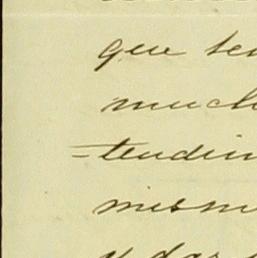 que ten
much
=tendim
mism
y dar